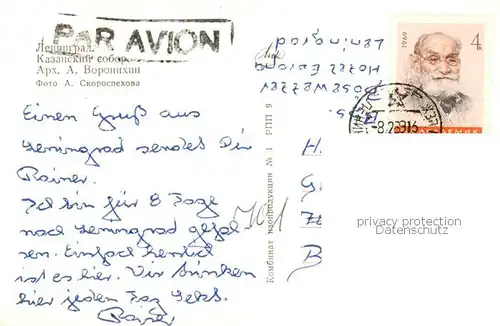 PAR AVION
Ленинград.
Казанский собор.
Арх. А. Воронихин
Фото А. Скороспехова
Einen Gruß aus
Leningrad sendet Dir
Rainer.
Ich bin für 8 Tage
nach Leningrad geflo
gen. Einfach herrlich
ist es hier. Wir trinken
hier jeden Tag Sekt.
Rainer
Комбинат цветной печати № 1 РПП 9
Hotel Europa
Leningrad
1969
4к
АКАДЕМИК
H.
G.
B
privacy protection
Datenschutz